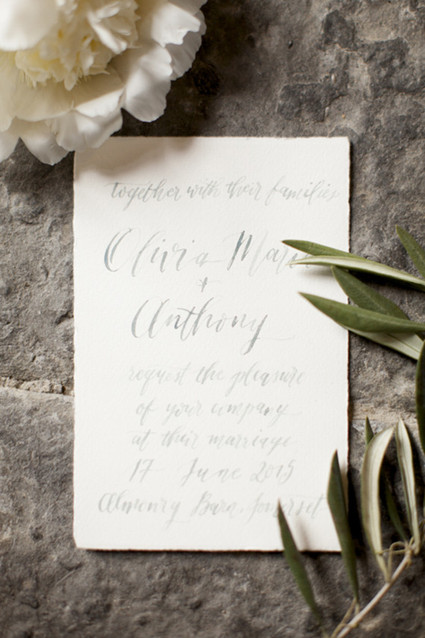 together with their families
Olivia Mari
+
Anthony
request the pleasure
of your company
at their marriage
17 June 2015
Almonry Barn, Somerset